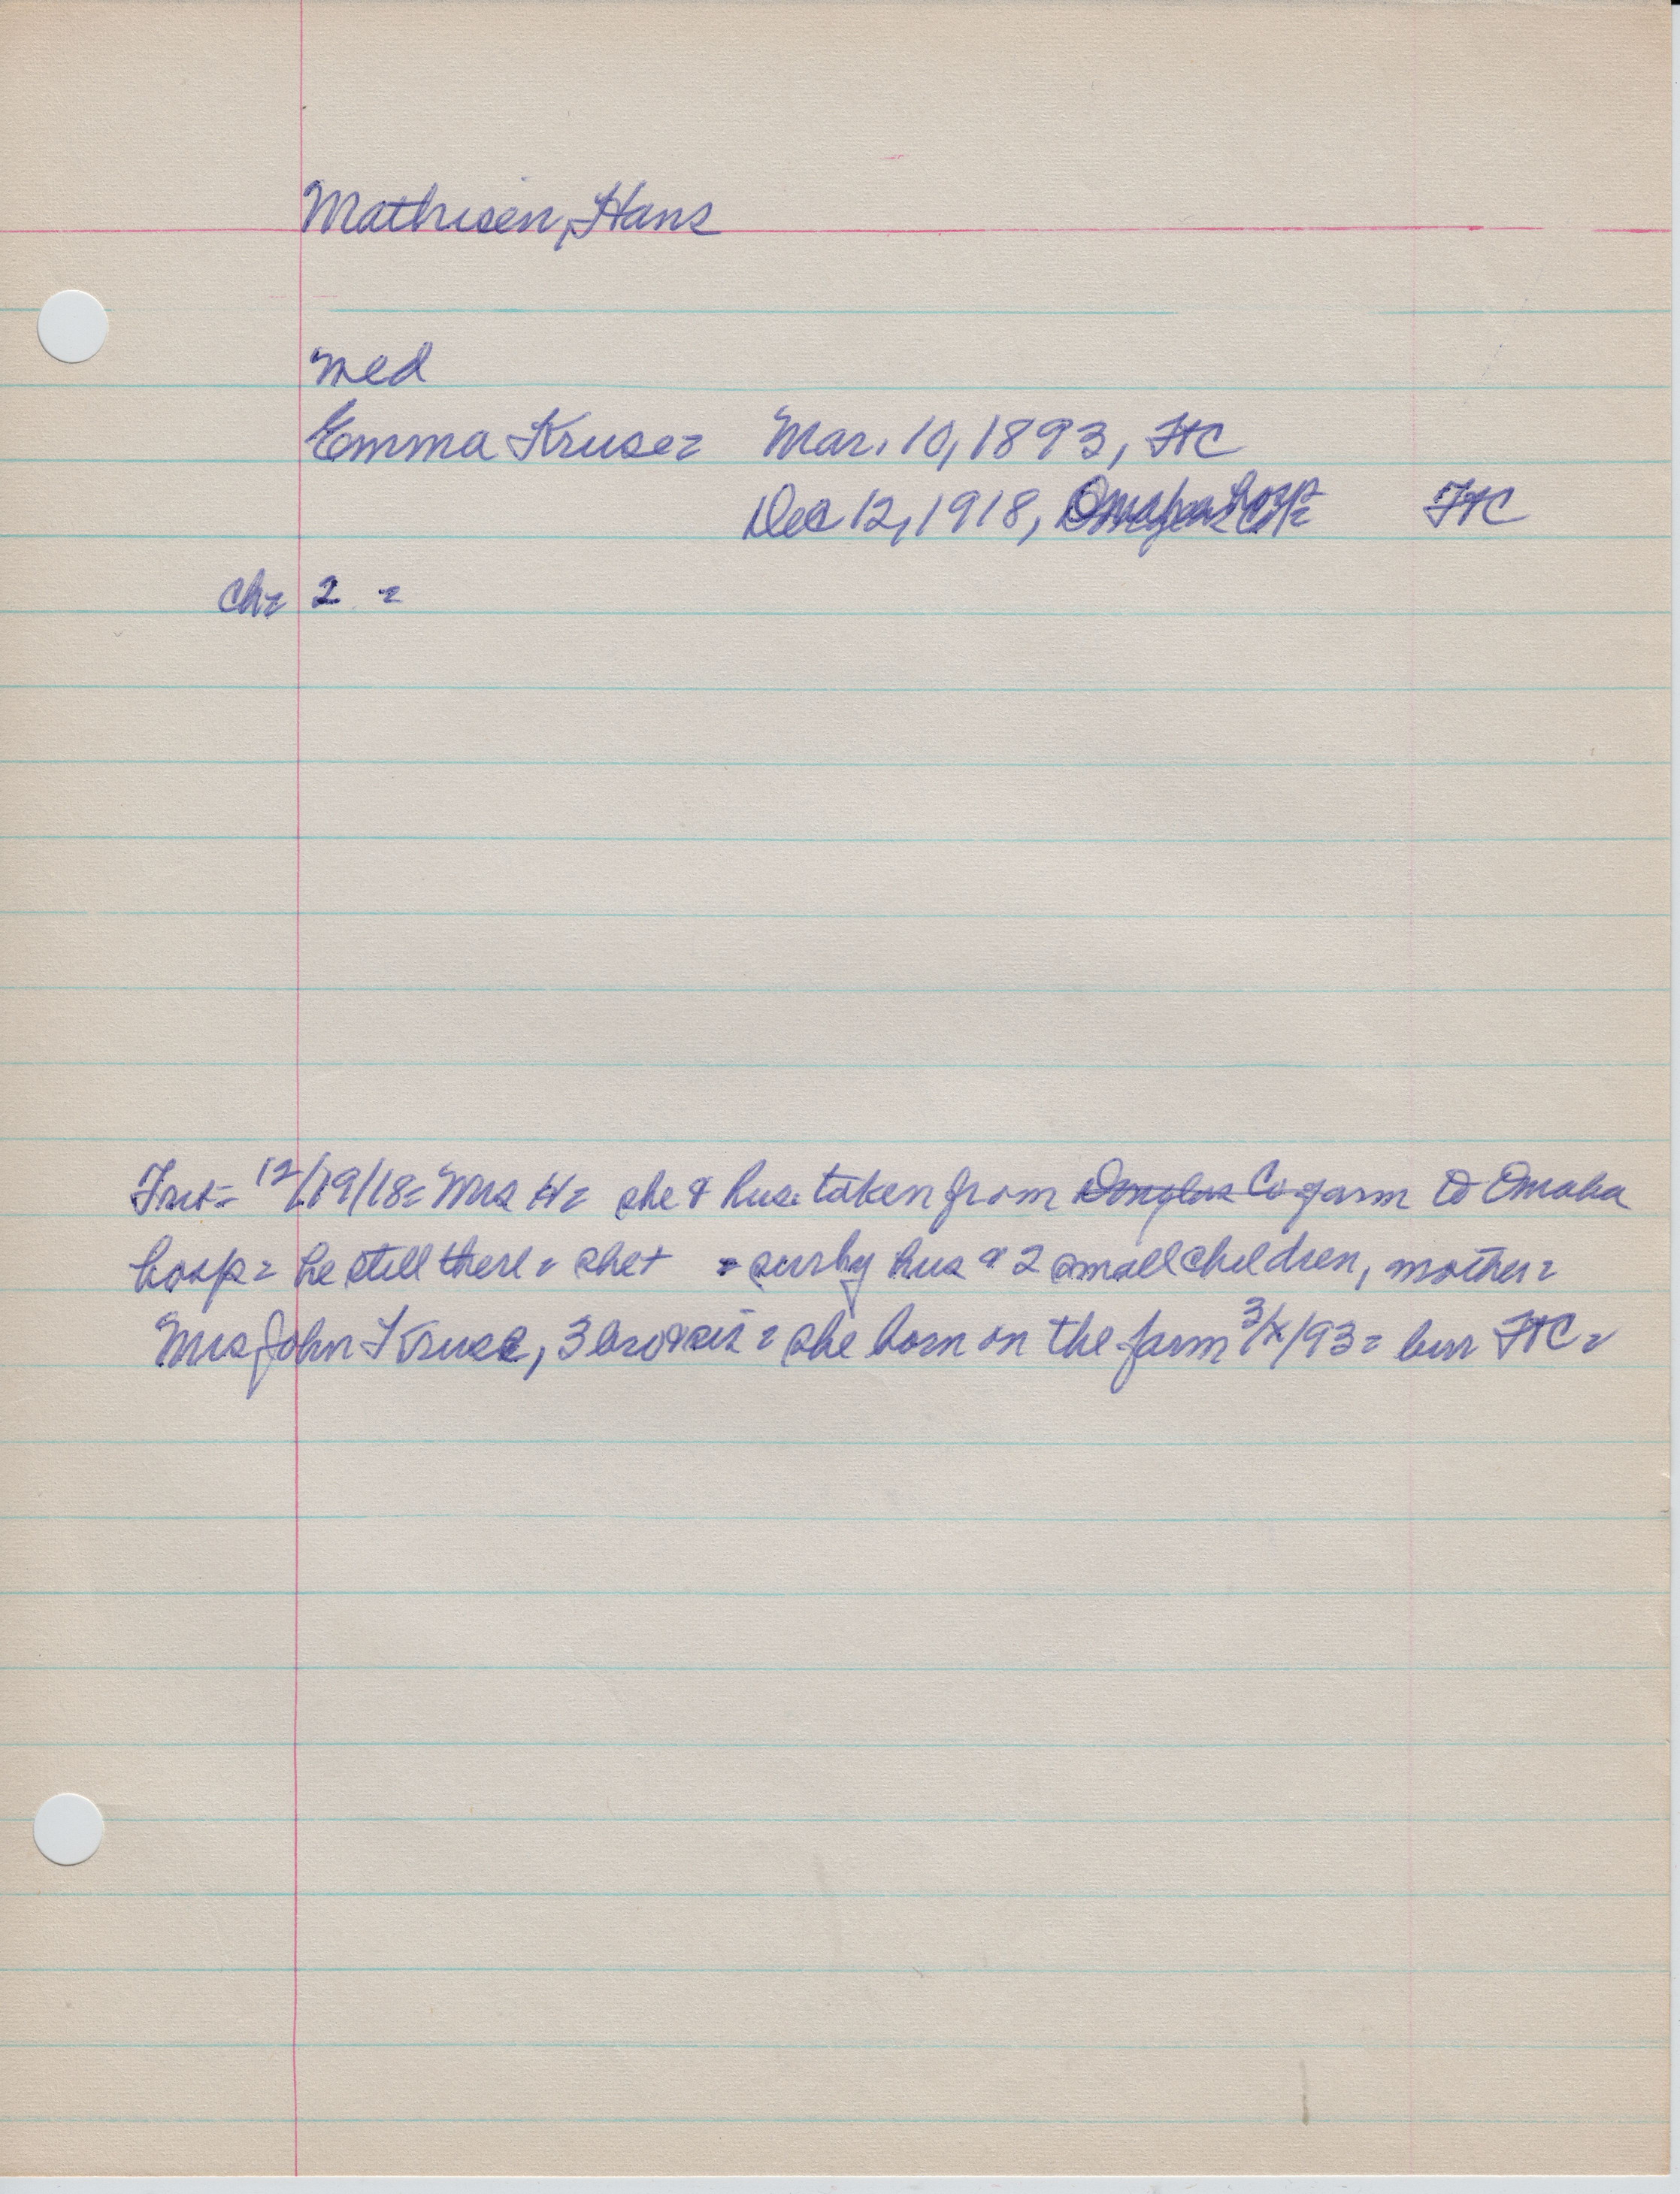 Mathisen, Hans
Med
Emma Kruse = Mar. 10, 1893, FtC
Dec 12, 1918, Omaha hosp = FtC
Ch = 2 =
= 12/19/18 = Mrs H = she & hus. taken from Douglas Co farm to Omaha
hosp = he still there = she + = sur by hus & 2 small children, mother =
Mrs John Kruse, 3 bro & sis = she born on the farm 3/x/93 = bur FtC =